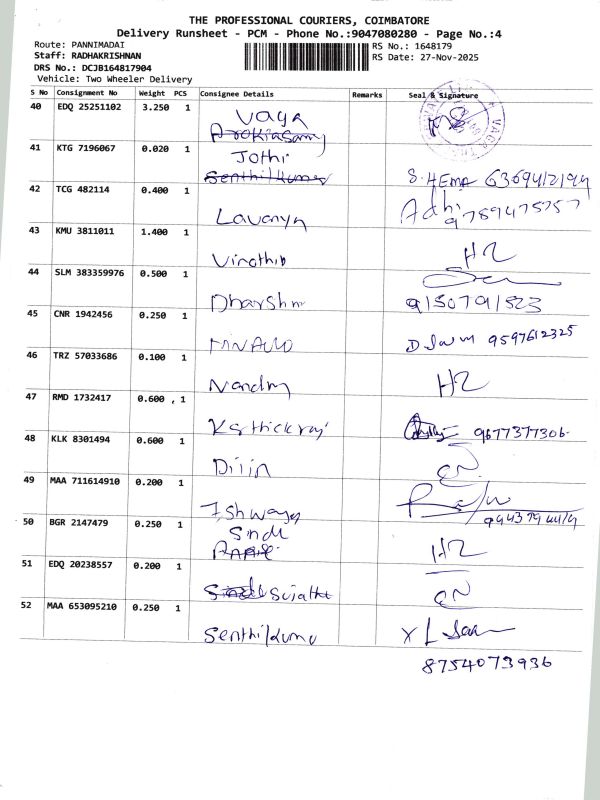 THE PROFESSIONAL COURIERS, COIMBATORE
Delivery Runsheet - PCM - Phone No.:9047080280 - Page No.:4
Route: PANNIMADAI
RS No.: 1648179
Staff: RADHAKRISHNAN
RS Date: 27-Nov-2025
DRS No.: DCJB164817904
Vehicle: Two Wheeler Delivery
S No Consignment No Weight PCS Consignee Details Remarks Seal & Signature
40 EDQ 25251102 3.250 1 Vaga
Arokiasamy
41 KTG 7196067 0.020 1 Jothi
Senthilkumar S. HEMA 6369412194
42 TCG 482114 0.400 1 Lavanya Adhi 9789475757
43 KMU 3811011 1.400 1 Virothib H2
44 SLM 383359976 0.500 1 Dharshn 9150791523
45 CNR 1942456 0.250 1 9597612325
46 TRZ 57033686 0.100 1 Nandny H2
47 RMD 1732417 0.600 , 1 Karthickraj 9677377306
48 KLK 8301494 0.600 1 Dilin
49 MAA 711614910 0.200 1 Ishwarya
50 BGR 2147479 0.250 1 Sindu H2
51 EDQ 20238557 0.200 1 Sujatha
52 MAA 653095210 0.250 1 Senthilkumar
8754073936